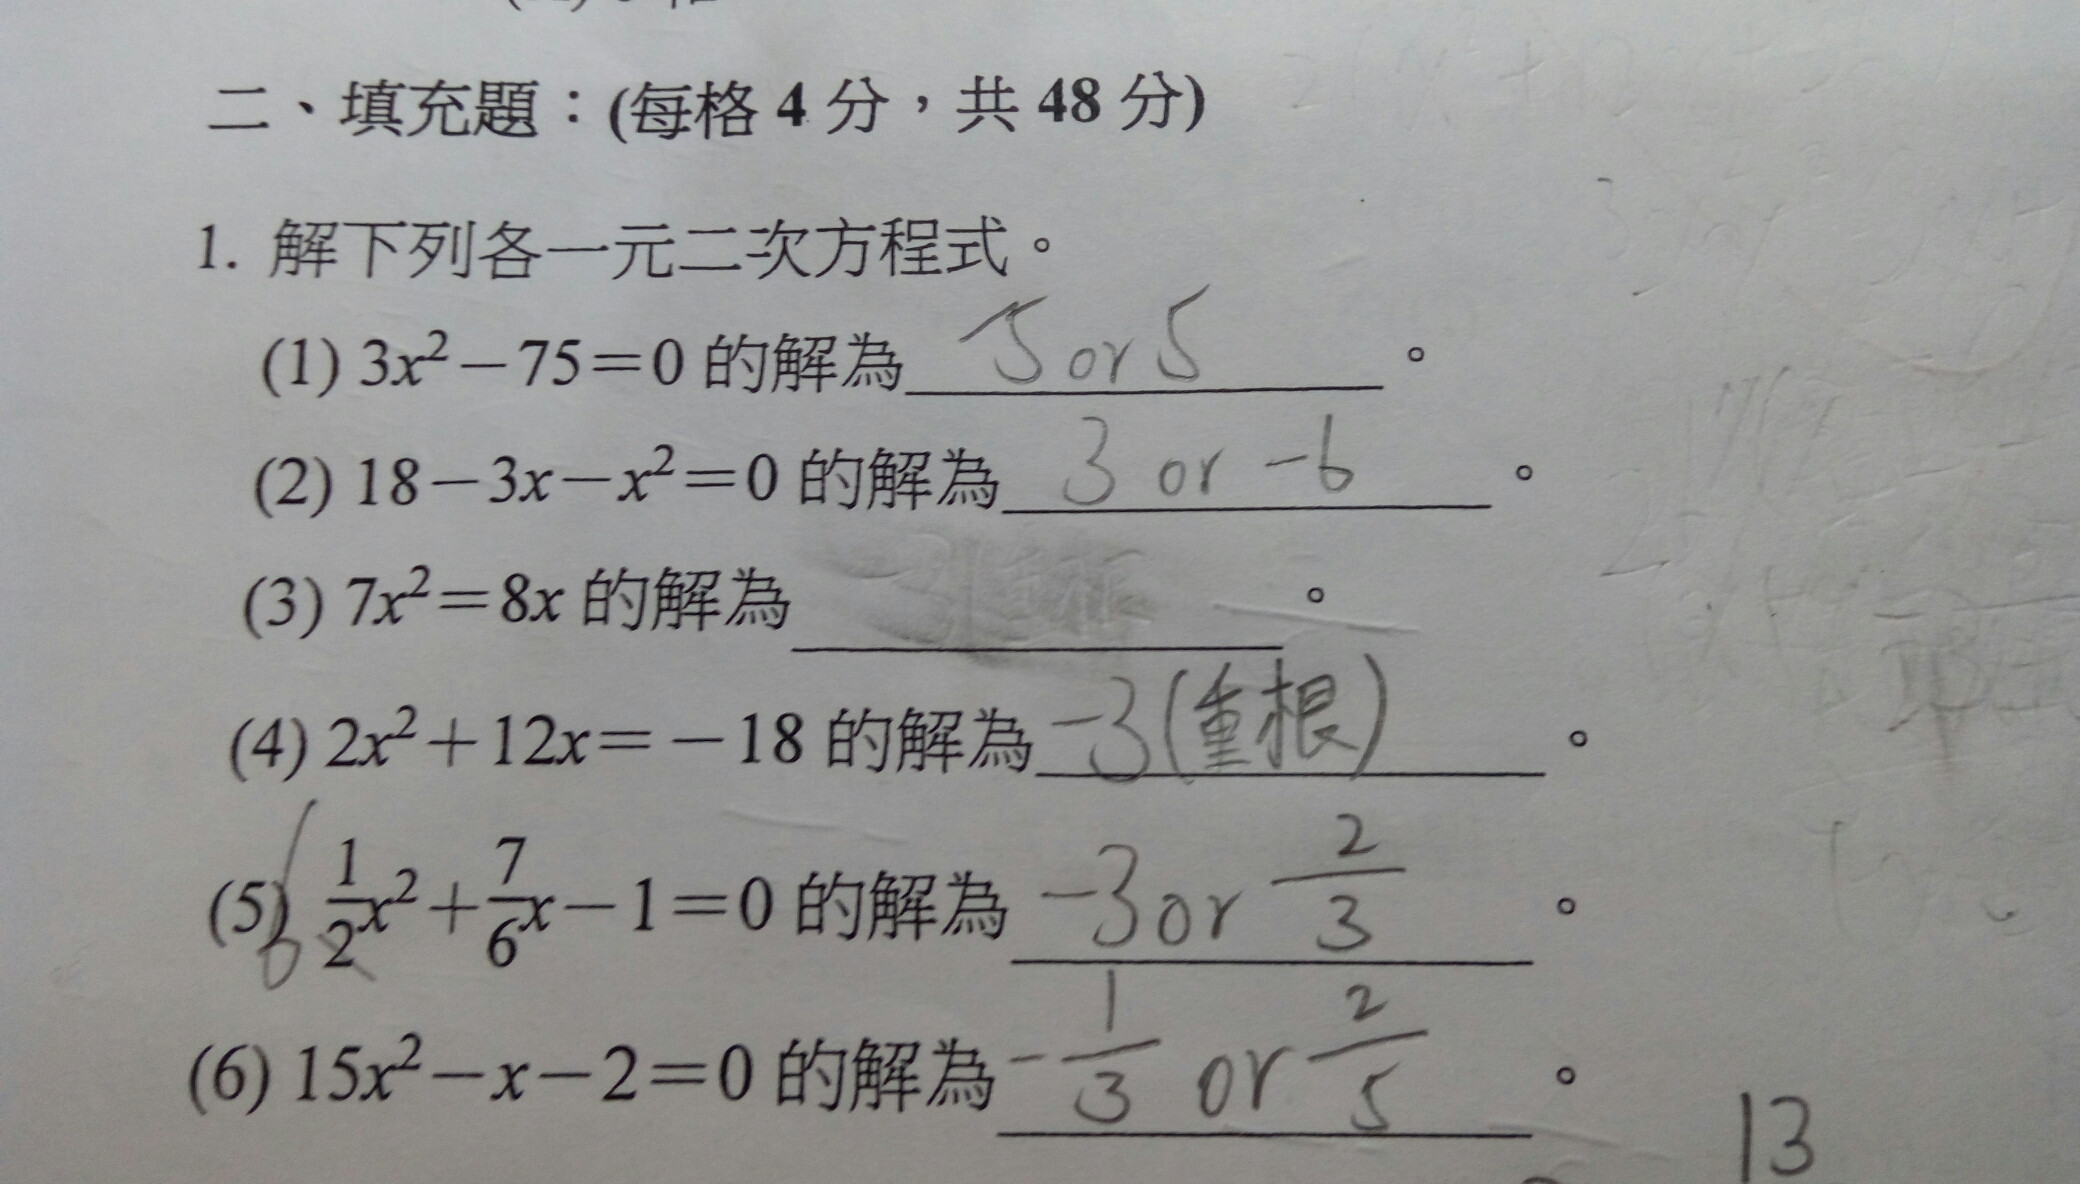 二、填充題：(每格 4 分，共 48 分)
1. 解下列各一元二次方程式。
(1) 3x²－75＝0 的解為 -5 or 5 。
(2) 18－3x－x²＝0 的解為 3 or -6 。
(3) 7x²＝8x 的解為 。
(4) 2x²＋12x＝－18 的解為 -3(重根) 。
(5) 1/2x²＋7/6x－1＝0 的解為 -3 or 2/3 。
(6) 15x²－x－2＝0 的解為 -1/3 or 2/5 。
13